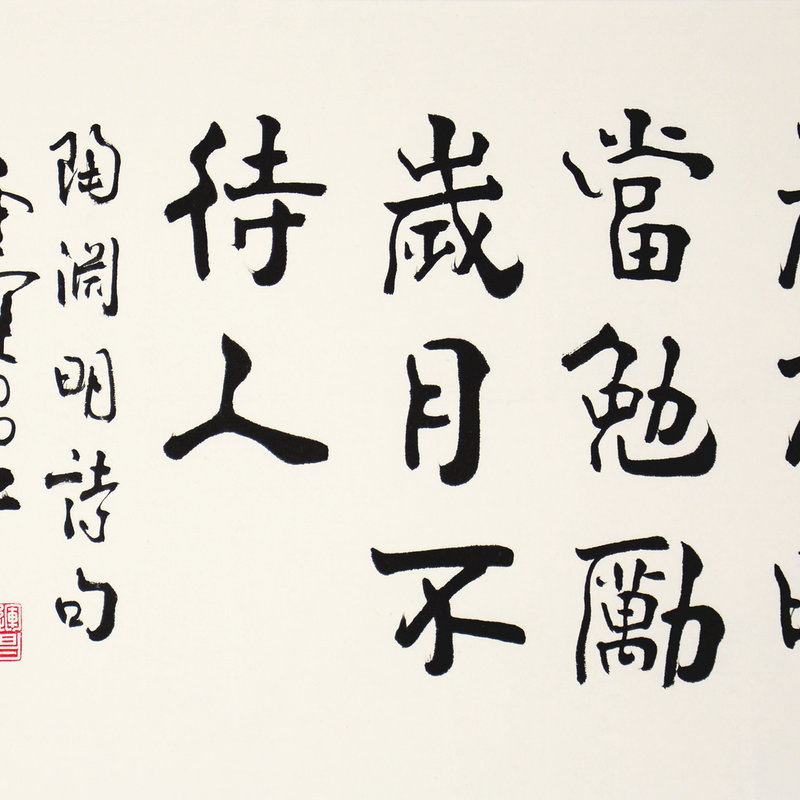 當勉勵
歲月不
待人
陶淵明詩句